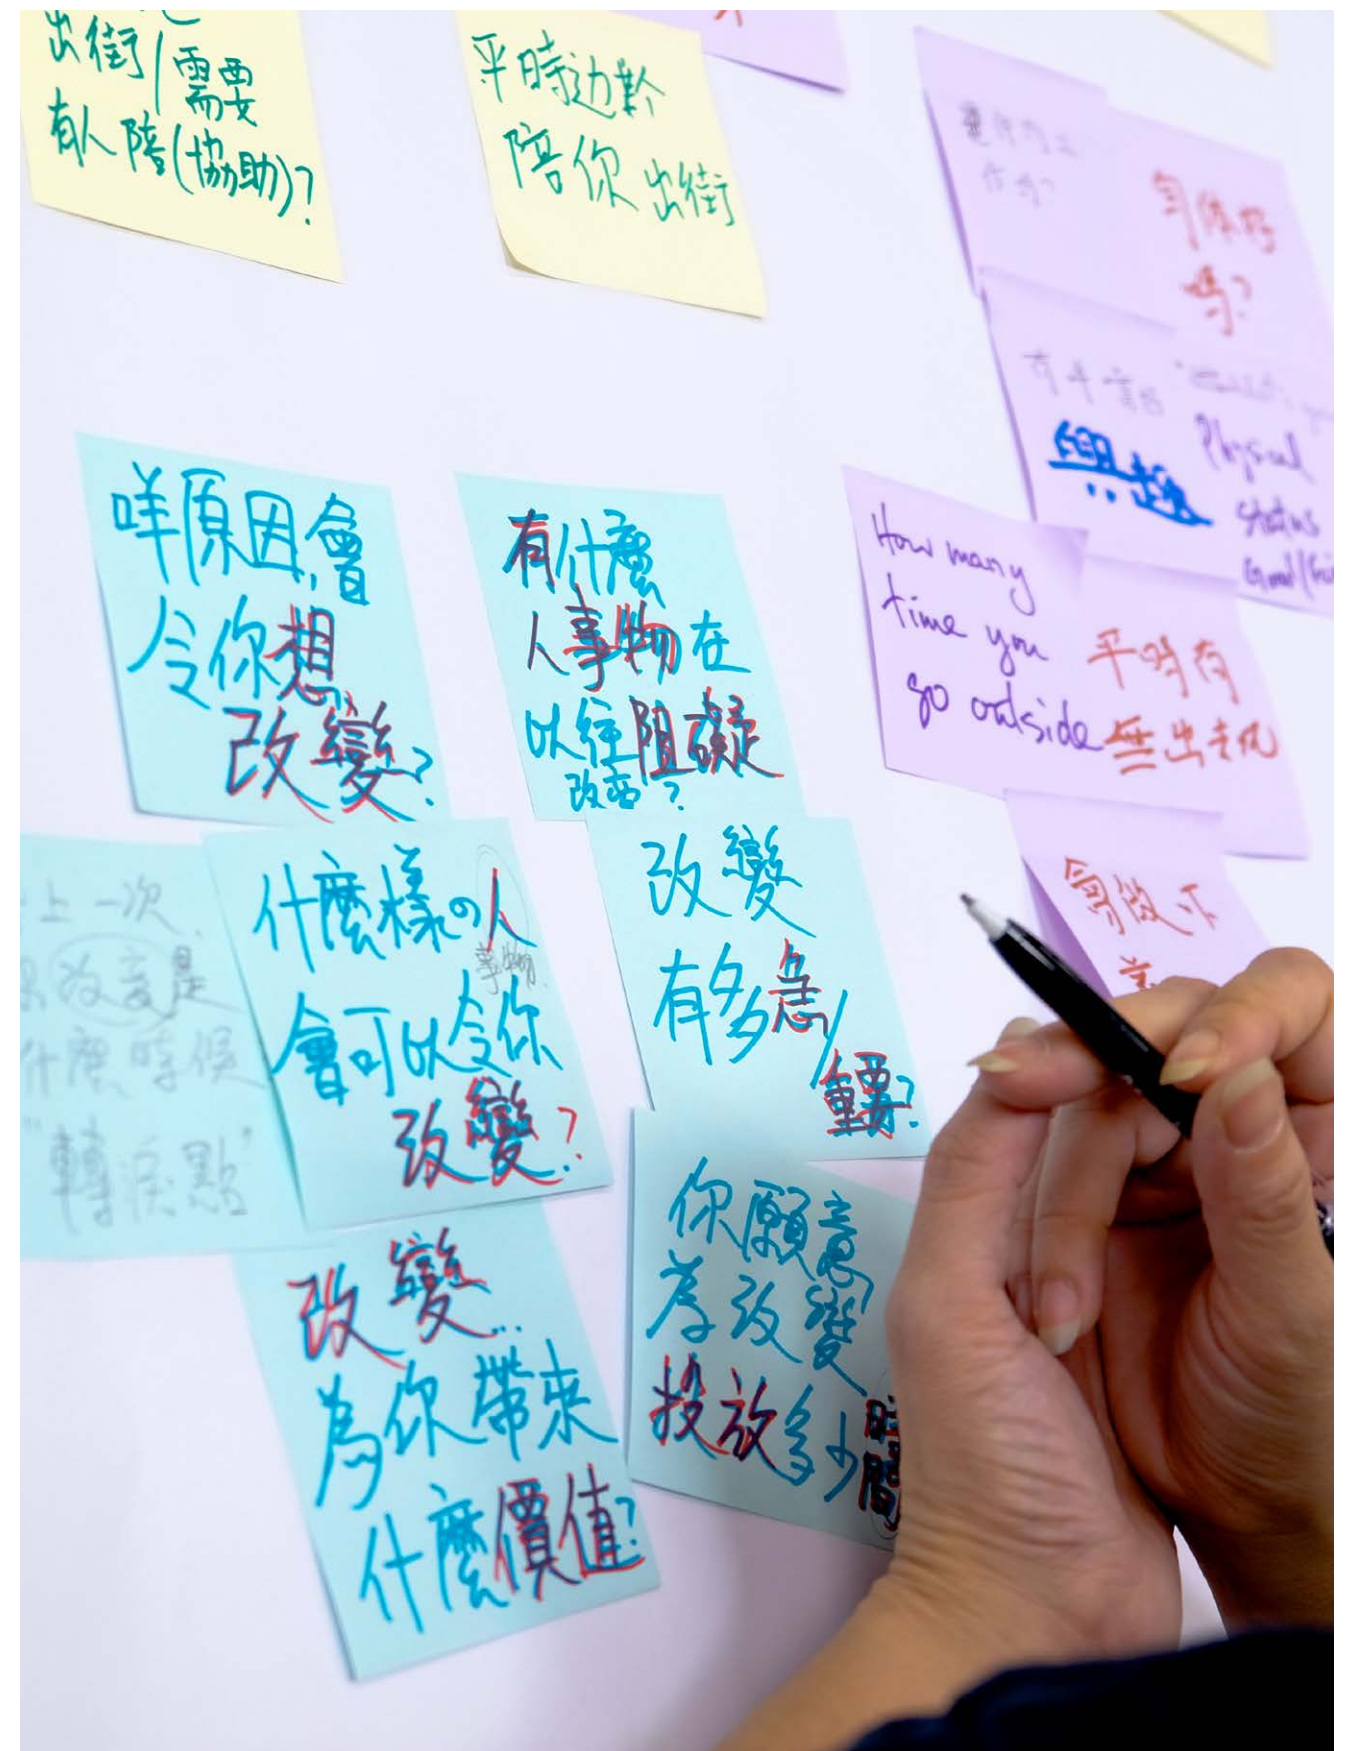 出街/需要
有人陪(協助)?
平時边黔
陪你出街
身体好
嗎?
興趣
Physical
status
Good/
How many
time you
go outside
平時有
無出去玩
咩原因,會
令你想
改變?
有什麼
人事物在
以往阻礙
改变?
上一次
改变是
什麼時候
"轉淚點"
什麼樣の人
事物
會可以令你
改變?
改變
有多急/
重要?
改變...
為你帶來
什麼價值?
你願意
為改變
投放多少時間